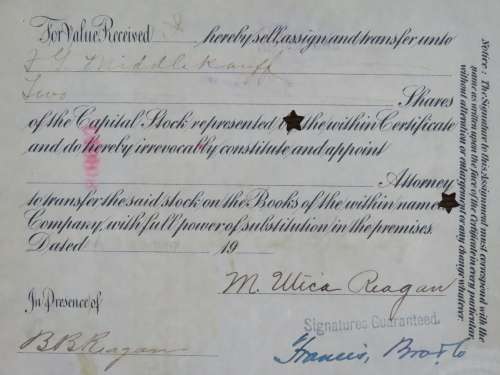 For Value Received I hereby sell, assign and transfer unto
F G Middlekauff
Two Shares
of the Capital Stock represented by the within Certificate
and do hereby irrevocably constitute and appoint
Attorney
to transfer the said stock on the Books of the within named
Company, with full power of substitution in the premises.
Dated 19
M. Utica Reagan
In Presence of
Signatures Guaranteed.
B B Reagan
Francis, Bro & Co
Notice: The Signature to this Assignment must correspond with the
name as written upon the face of the Certificate in every particular,
without alteration or enlargement or any change whatever.